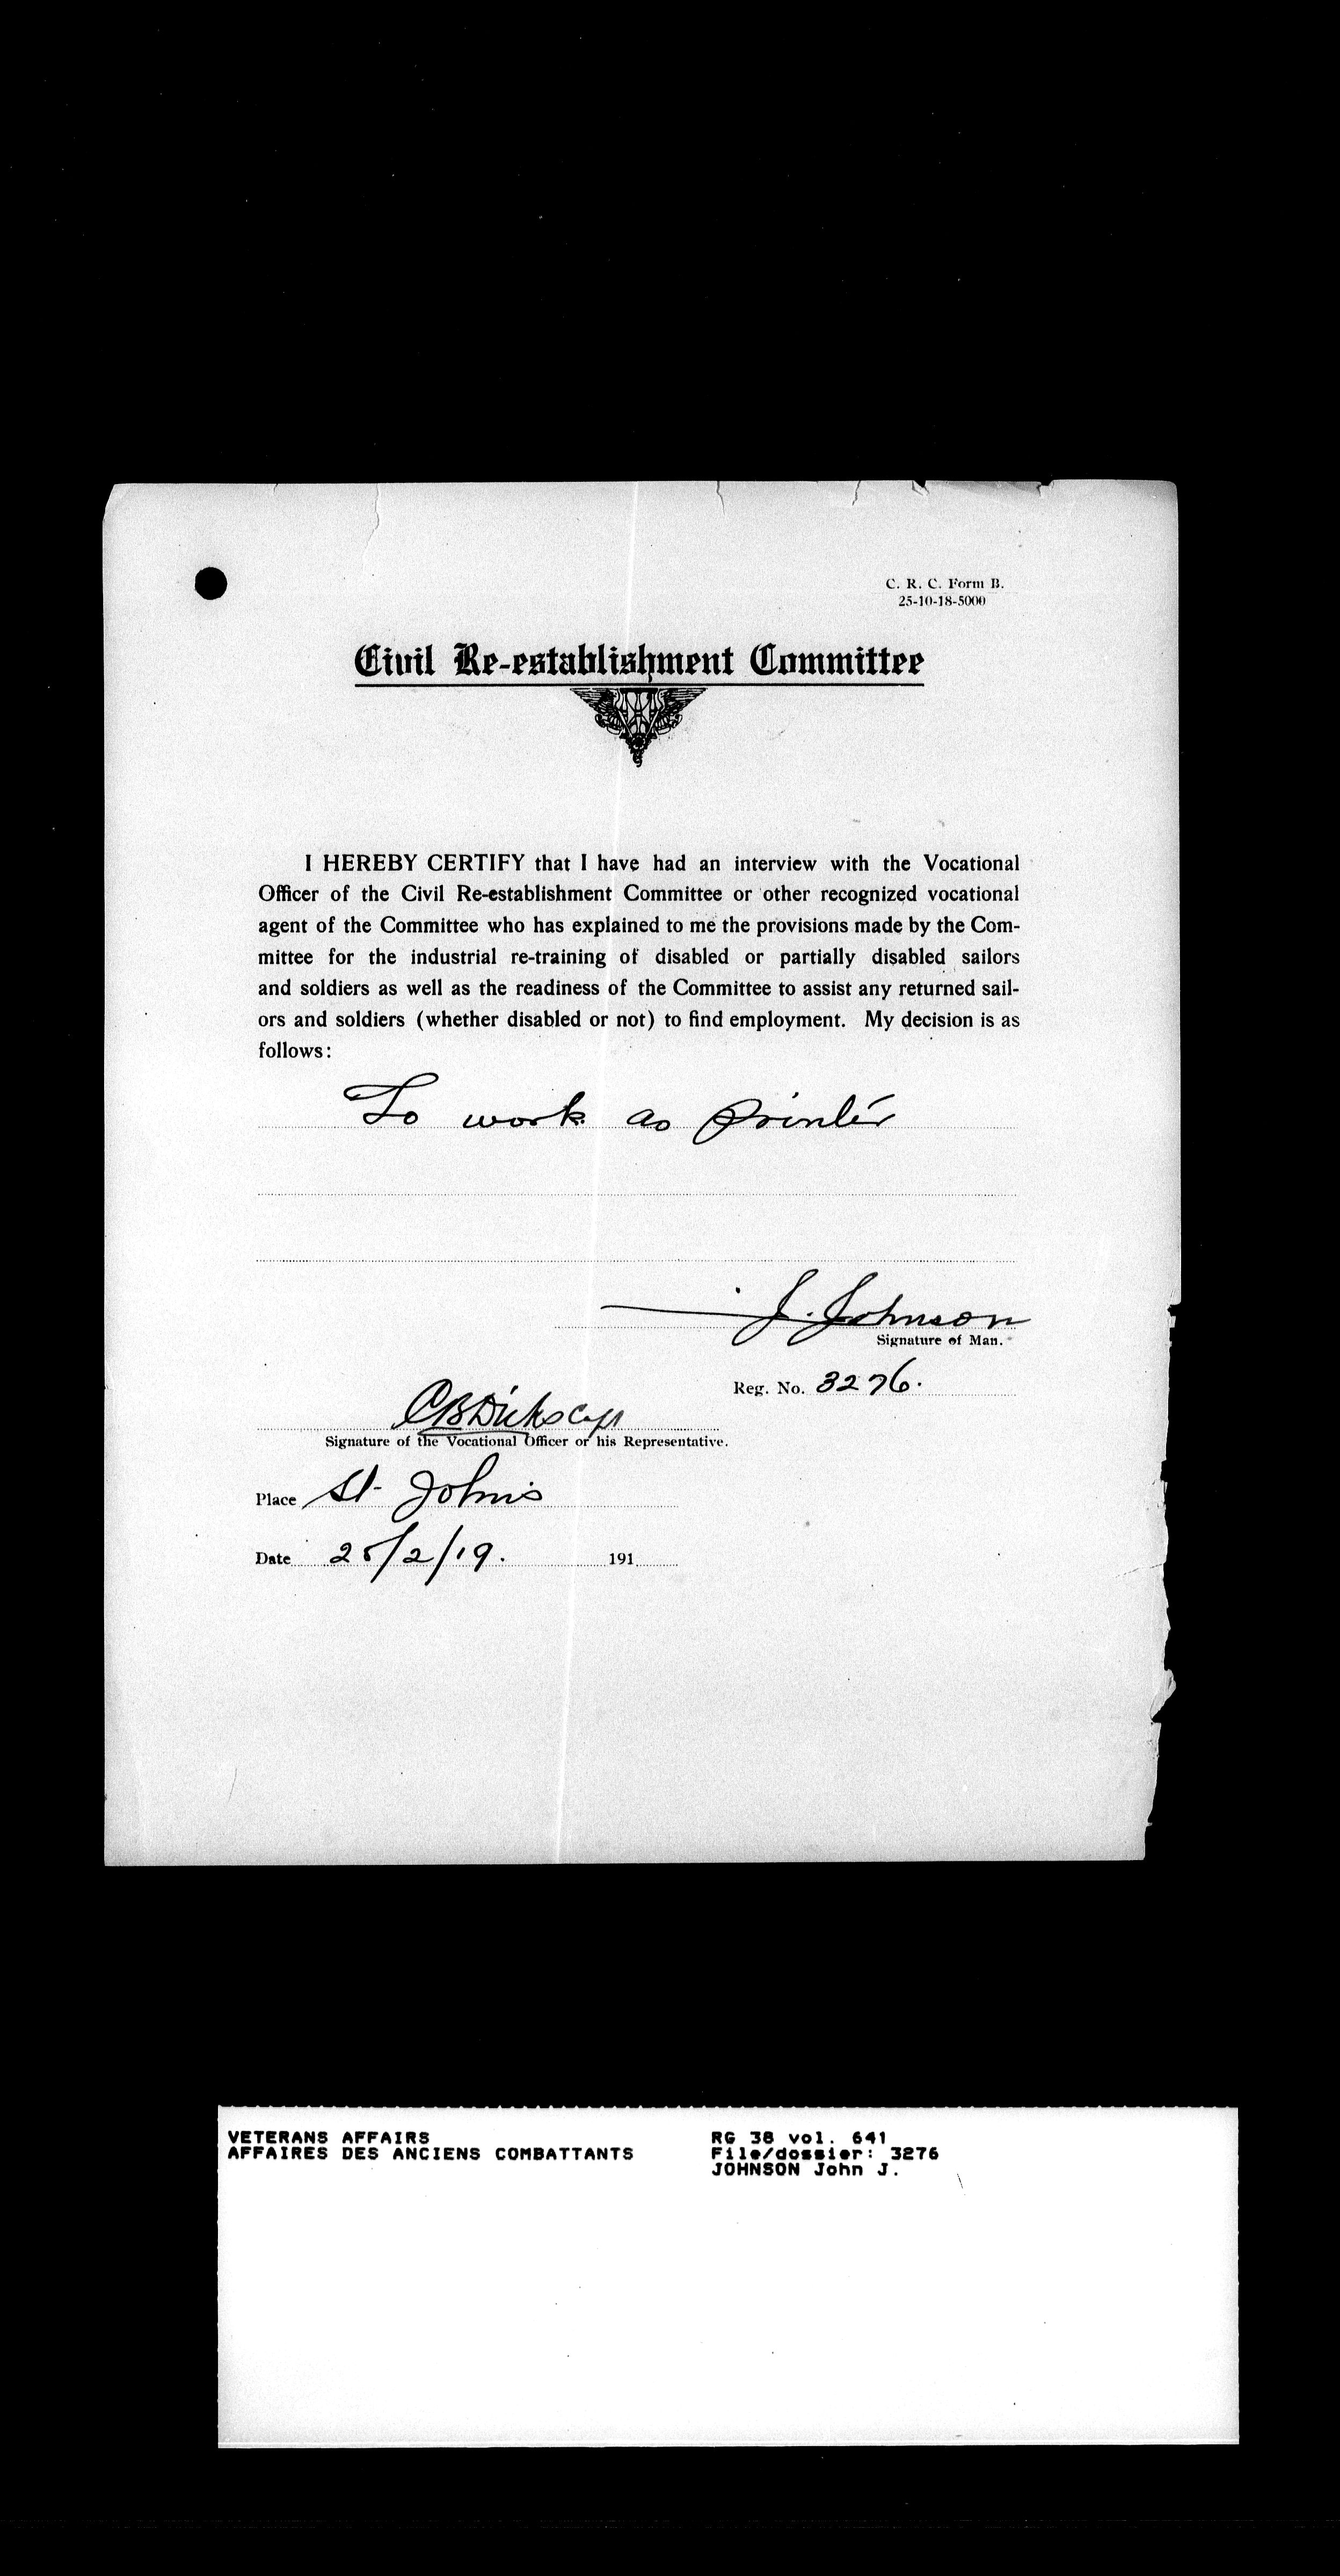 C. R. C. Form B.
25-10-18-5000
Civil Re-establishment Committee
I HEREBY CERTIFY that I have had an interview with the Vocational
Officer of the Civil Re-establishment Committee or other recognized vocational
agent of the Committee who has explained to me the provisions made by the Com-
mittee for the industrial re-training of disabled or partially disabled sailors
and soldiers as well as the readiness of the Committee to assist any returned sail-
ors and soldiers (whether disabled or not) to find employment. My decision is as
follows:
To work as printer
J. Johnson
Signature of Man.
Reg. No. 3276.
CBDicks Capt
Signature of the Vocational Officer or his Representative.
Place St. John's
Date 25/2/19. 191
VETERANS AFFAIRS RG 38 vol. 641
AFFAIRES DES ANCIENS COMBATTANTS File/dossier: 3276
JOHNSON John J.